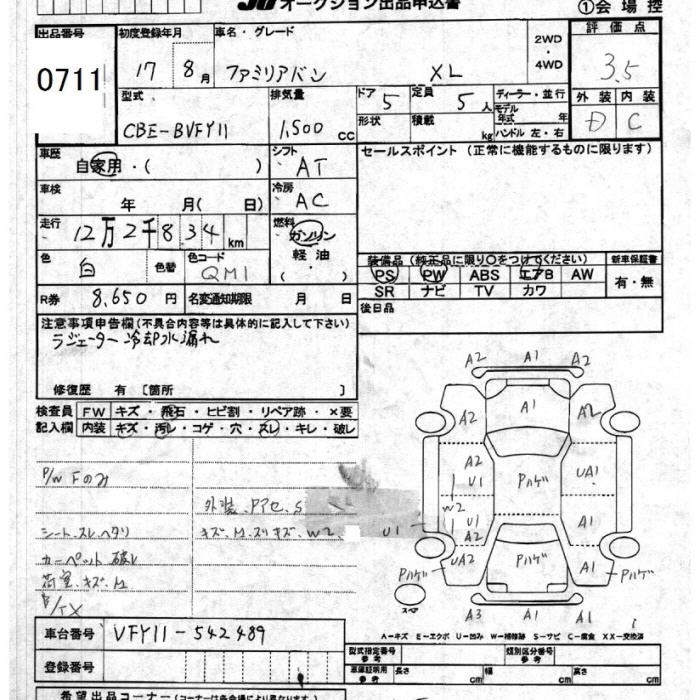 JU オークション出品申込書
①会場控
出品番号 初度登録年月 車名・グレード 2WD・4WD 評価点
0711 17 8月 ファミリアバン XL 3.5
型式 排気量 ドア 5 定員 5人 ディーラー・並行 外装 内装
CBE-BVFY11 1,500 cc 形状 積載 kg モデル年式 年 ハンドル 左・右 D C
車歴 自家用・( ) シフト AT セールスポイント (正常に機能するものに限ります)
車検 年 月( 日) 冷房 AC
走行 12万2千834km 燃料 ガソリン・軽油・( )
色 白 色替 色コード QM1 装備品 (純正品に限り○をつけてください) 新車保証書
PS PW ABS エアB AW 有・無
SR ナビ TV カワ
R券 8,650円 名変通知期限 月 日 後日品
注意事項申告欄 (不具合内容等は具体的に記入して下さい)
ラジェーター 冷却水漏れ
修復歴 有 [箇所 ]
検査員 FW キズ・飛石・ヒビ割・リペア跡・×要
記入欄 内装 キズ・汚レ・コゲ・穴・スレ・キレ・破レ
P/W Fのみ
外装 Pアセ.S
シート.スレ.ヘタリ キズ.M.スリキズ.W2
カーペット破レ
荷室.キズ.M
A2 A1 A2
A2 A1 A2
A2 U1 Pハゲ UA1
W2
U1 U1 A1
A2
Pハゲ UA2 Pハゲ A1 Pハゲ
スペア
A3 A1 A2
A-キズ E-エクボ U-凹み W-補修跡 S-サビ C-腐食 XX-交換済
車台番号 VFY11-542489
型式指定番号 参考 類別区分番号 参考
登録番号 車庫証明用 参考 長さ cm 幅 cm 高さ cm
希望出品コーナー (コーナーは各会場により異なります。)